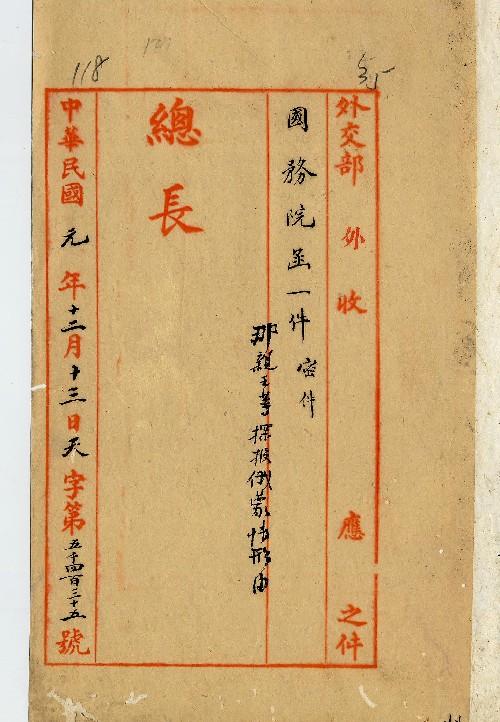 118
外交部外收應之件
國務院函一件密件
那親王等探報俄蒙情形由
總長
中華民國元年十二月十三日天字第五千四百三十五號